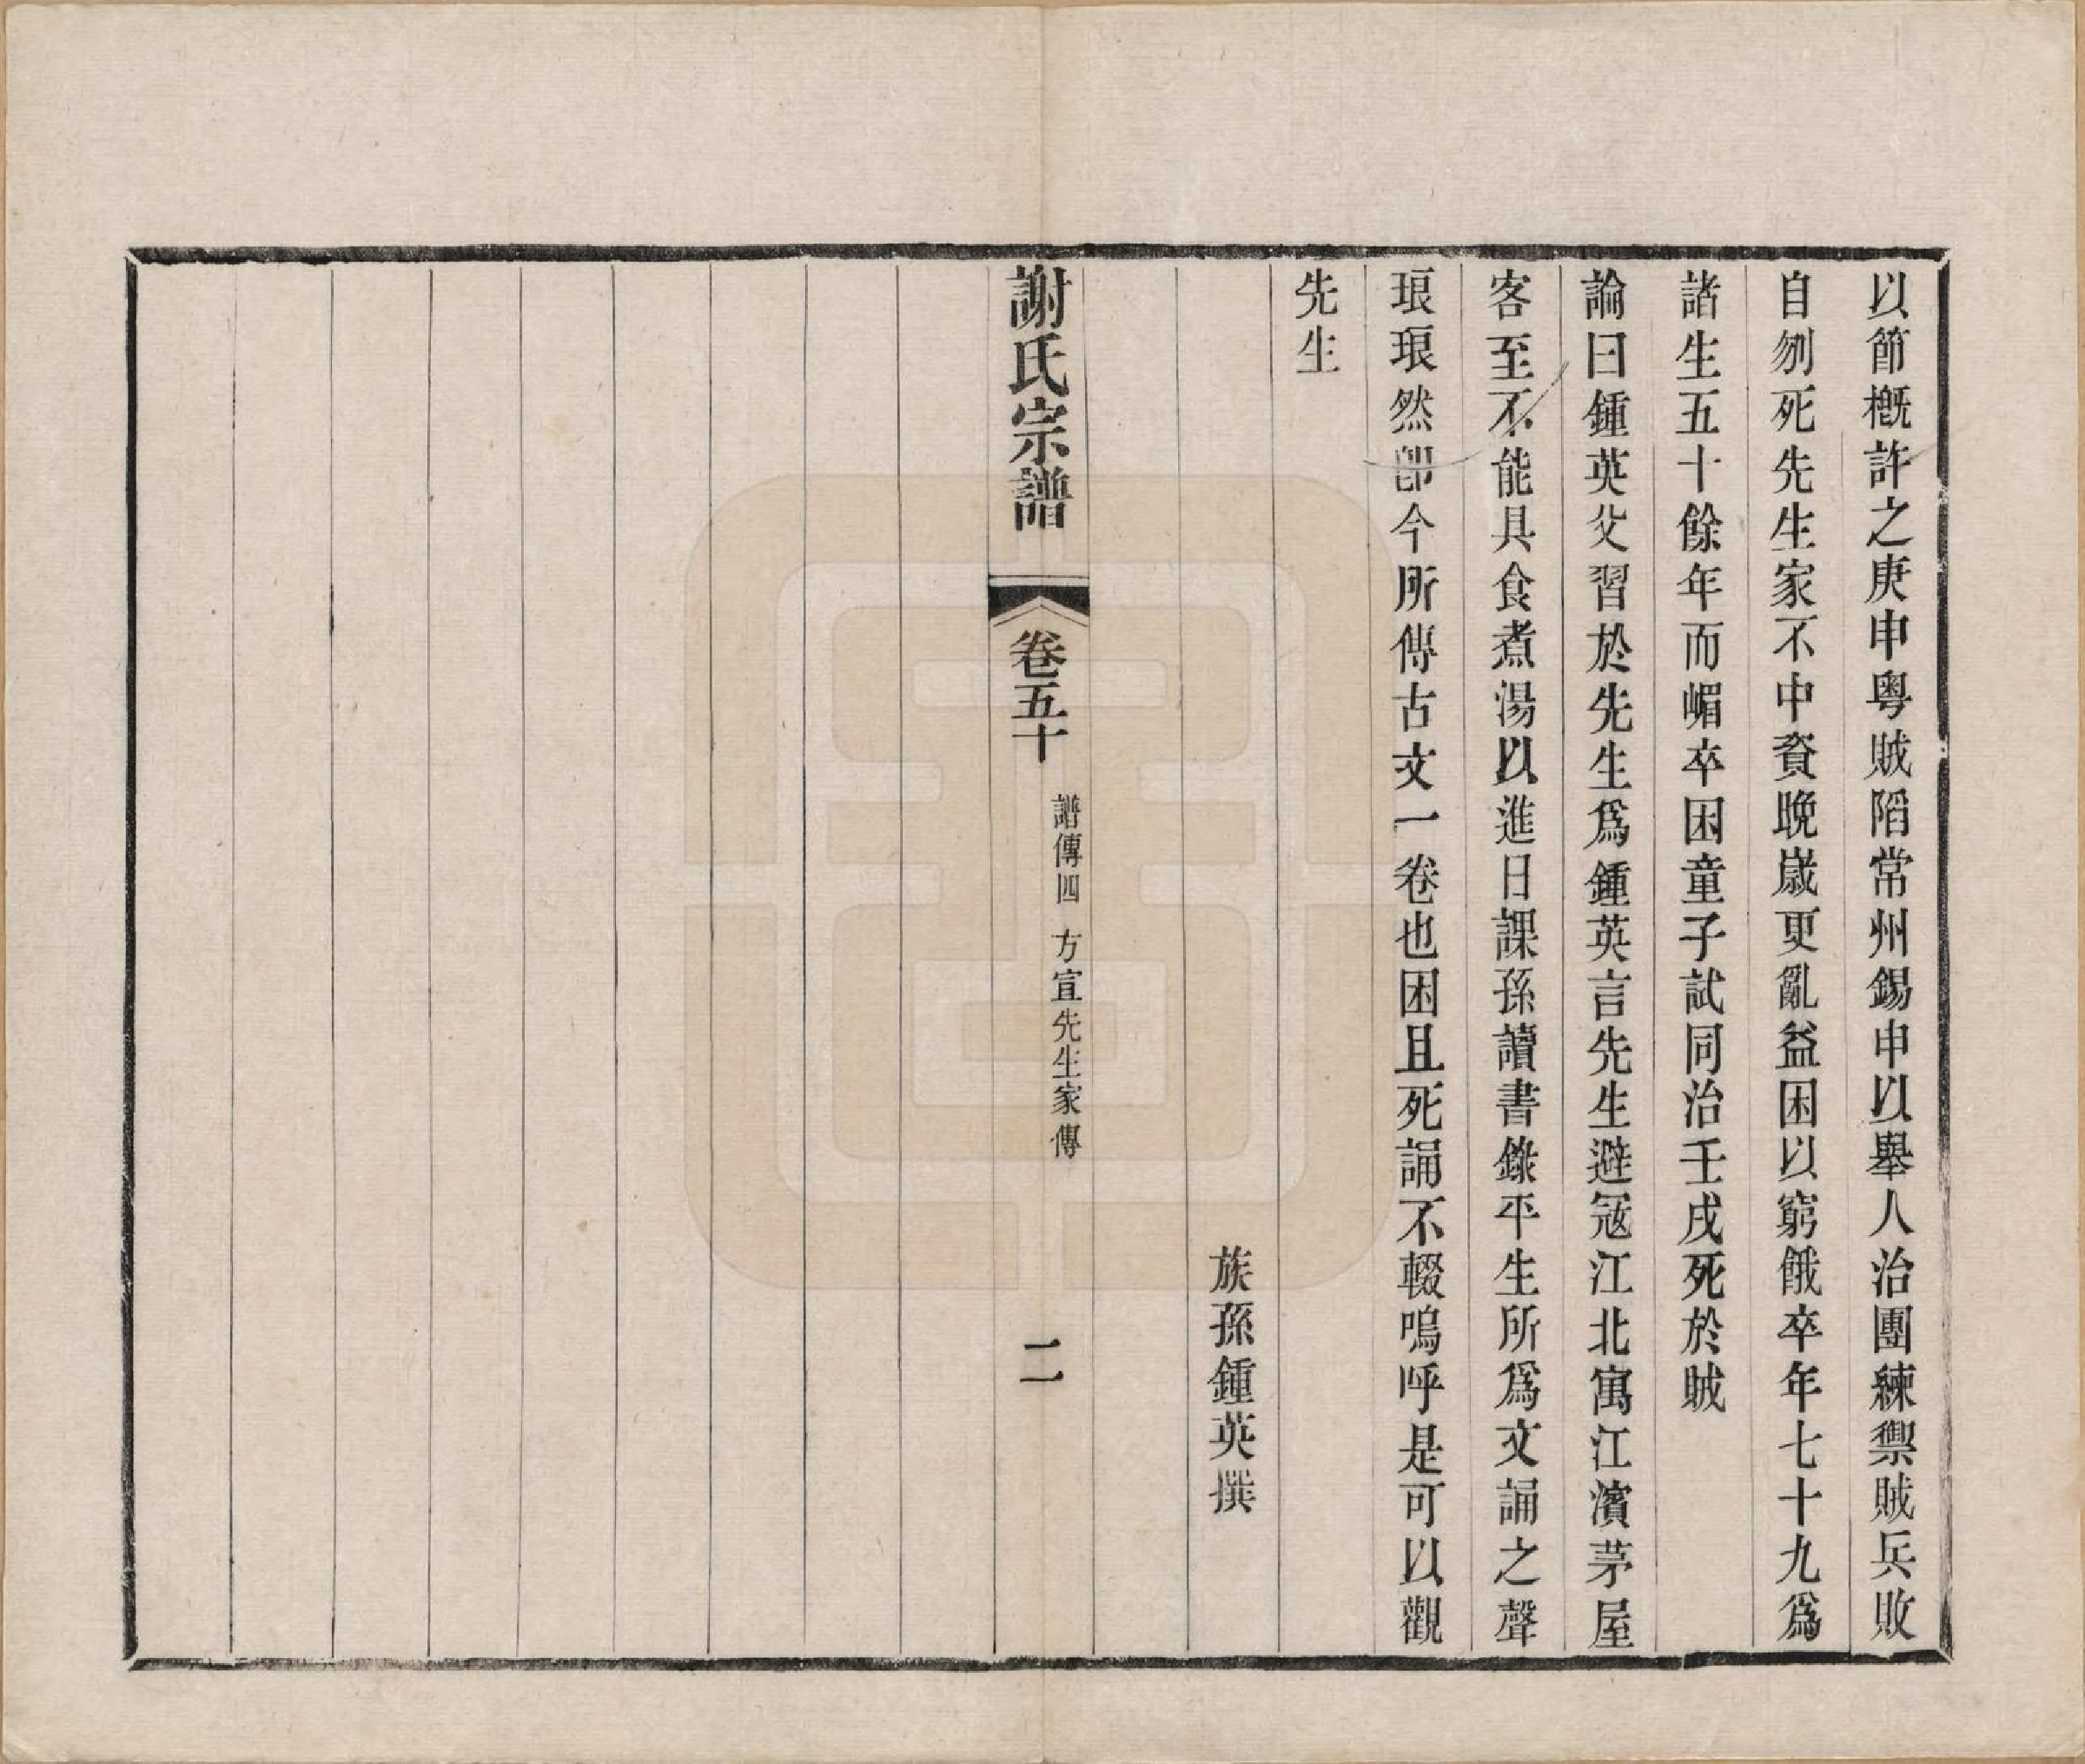 以節槪許之庚申粤賊陷常州錫申以舉人治團練禦賊兵敗
自刎死先生家不中貲晚嵗更亂益困以窮餓卒年七十九爲
諸生五十餘年而嵋卒困童子試同治壬戌死於賊
論曰鍾英父習於先生爲鍾英言先生避冦江北寓江濱茅屋
客至不能具食煮湯以進日課孫讀書錄平生所爲文誦之聲
琅琅然卽今所傳古文一卷也困且死誦不輟嗚呼是可以觀
先生
族孫鍾英撰
謝氏宗譜 卷五十 譜傳四 方宣先生家傳 二